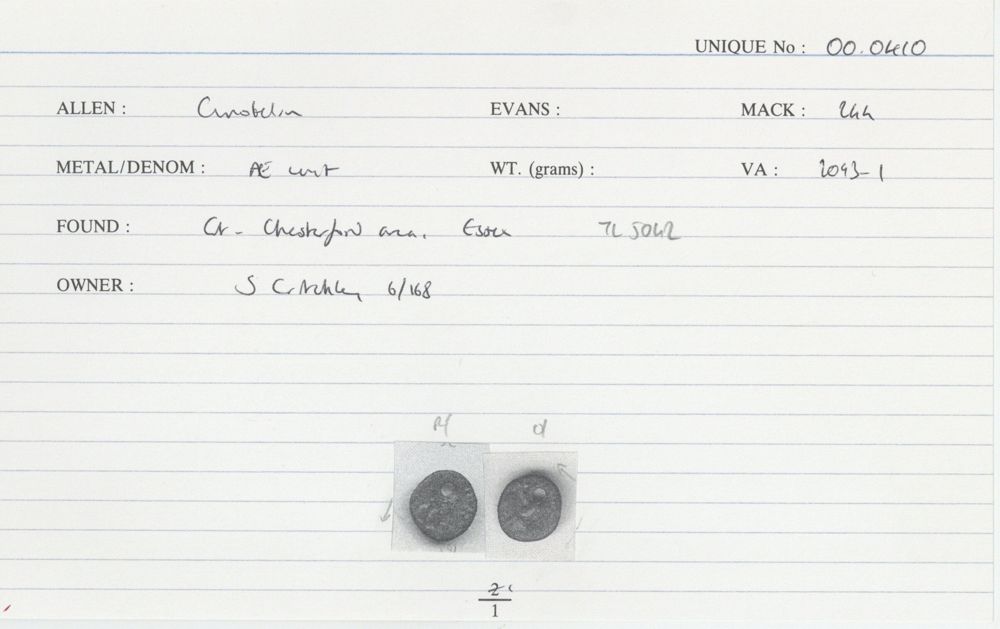 UNIQUE No : 00.0410
ALLEN : Cunobelin EVANS : MACK : 244
METAL/DENOM : Æ unit WT. (grams) : VA : 2093-1
FOUND : Gt. Chesterford area, Essex TL 5042
OWNER : S Critchley 6/168
2
1